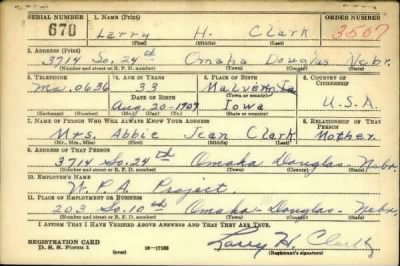 SERIAL NUMBER 1. NAME (Print) ORDER NUMBER
670 Larry H. Clark 3507
(First) (Middle) (Last)
2. ADDRESS (Print)
3714 So. 24th Omaha Douglas Nebr.
(Number and street or R. F. D. number) (Town) (County) (State)
3. TELEPHONE 4. AGE IN YEARS 5. PLACE OF BIRTH 6. COUNTRY OF CITIZENSHIP
Ma. 0636 33 Malvern Ia
DATE OF BIRTH (Town or county)
Aug. 20-1907 Iowa U.S.A.
(Mo.) (Day) (Yr.) (State or country)
7. NAME OF PERSON WHO WILL ALWAYS KNOW YOUR ADDRESS 8. RELATIONSHIP OF THAT PERSON
Mrs. Abbie Jean Clark Mother
(Mr., Mrs., Miss) (First) (Middle) (Last)
9. ADDRESS OF THAT PERSON
3714 So. 24th Omaha Douglas Nebr.
(Number and street or R. F. D. number) (Town) (County) (State)
10. EMPLOYER'S NAME
W. P. A. Project.
11. PLACE OF EMPLOYMENT OR BUSINESS
203 So. 10th Omaha Douglas Nebr.
(Number and street or R. F. D. number) (Town) (County) (State)
I AFFIRM THAT I HAVE VERIFIED ABOVE ANSWERS AND THAT THEY ARE TRUE.
REGISTRATION CARD
D. S. S. FORM 1 (over) 16-17105 Larry H. Clark
(Registrant's signature)